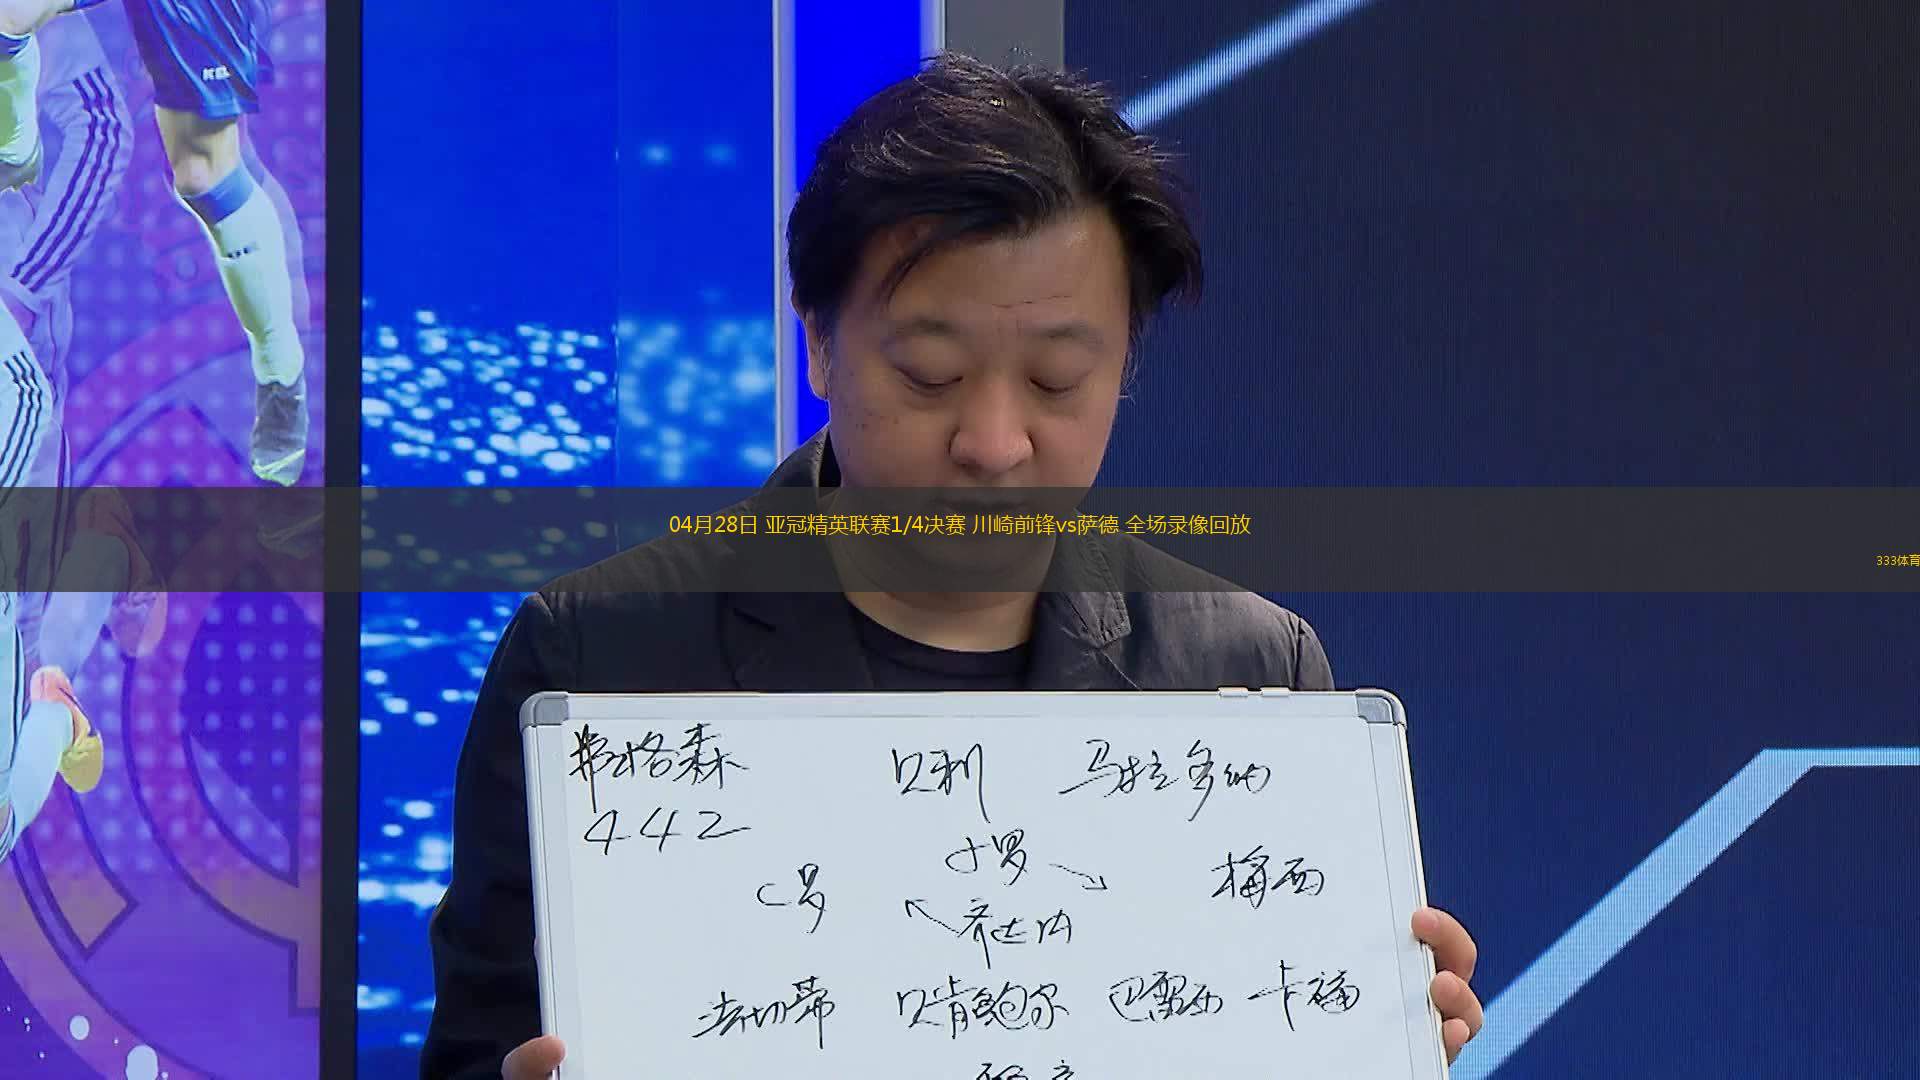 04月28日 亚冠精英联赛1/4决赛 川崎前锋vs萨德 全场录像回放
333体育
弗格森 贝利 马拉多纳
442
小罗
C罗 梅西
齐达内
法切蒂 贝肯鲍尔 巴雷西 卡福